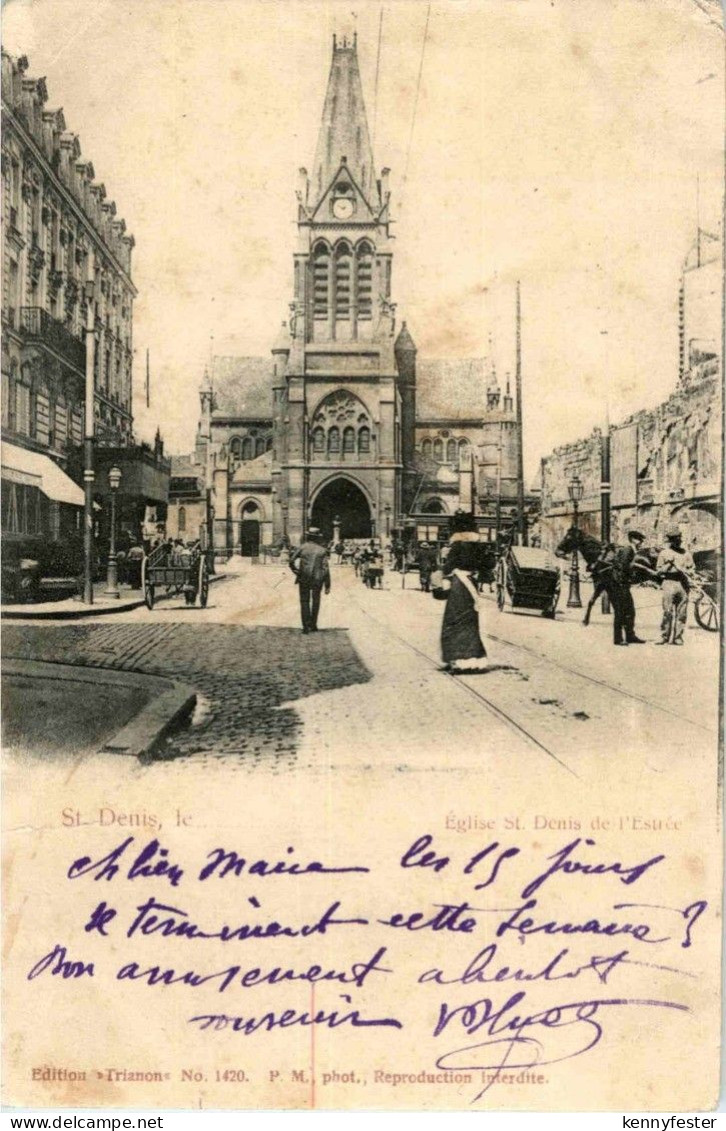 St. Denis, le
Église St. Denis de l'Estrée
Maria les 15 jours
se terminent cette semaine ?
Bon amusement a bientot
souvenir
Edition »Trianon« No. 1420. P. M., phot., Reproduction interdite.
Delcampe.net
kennyfester